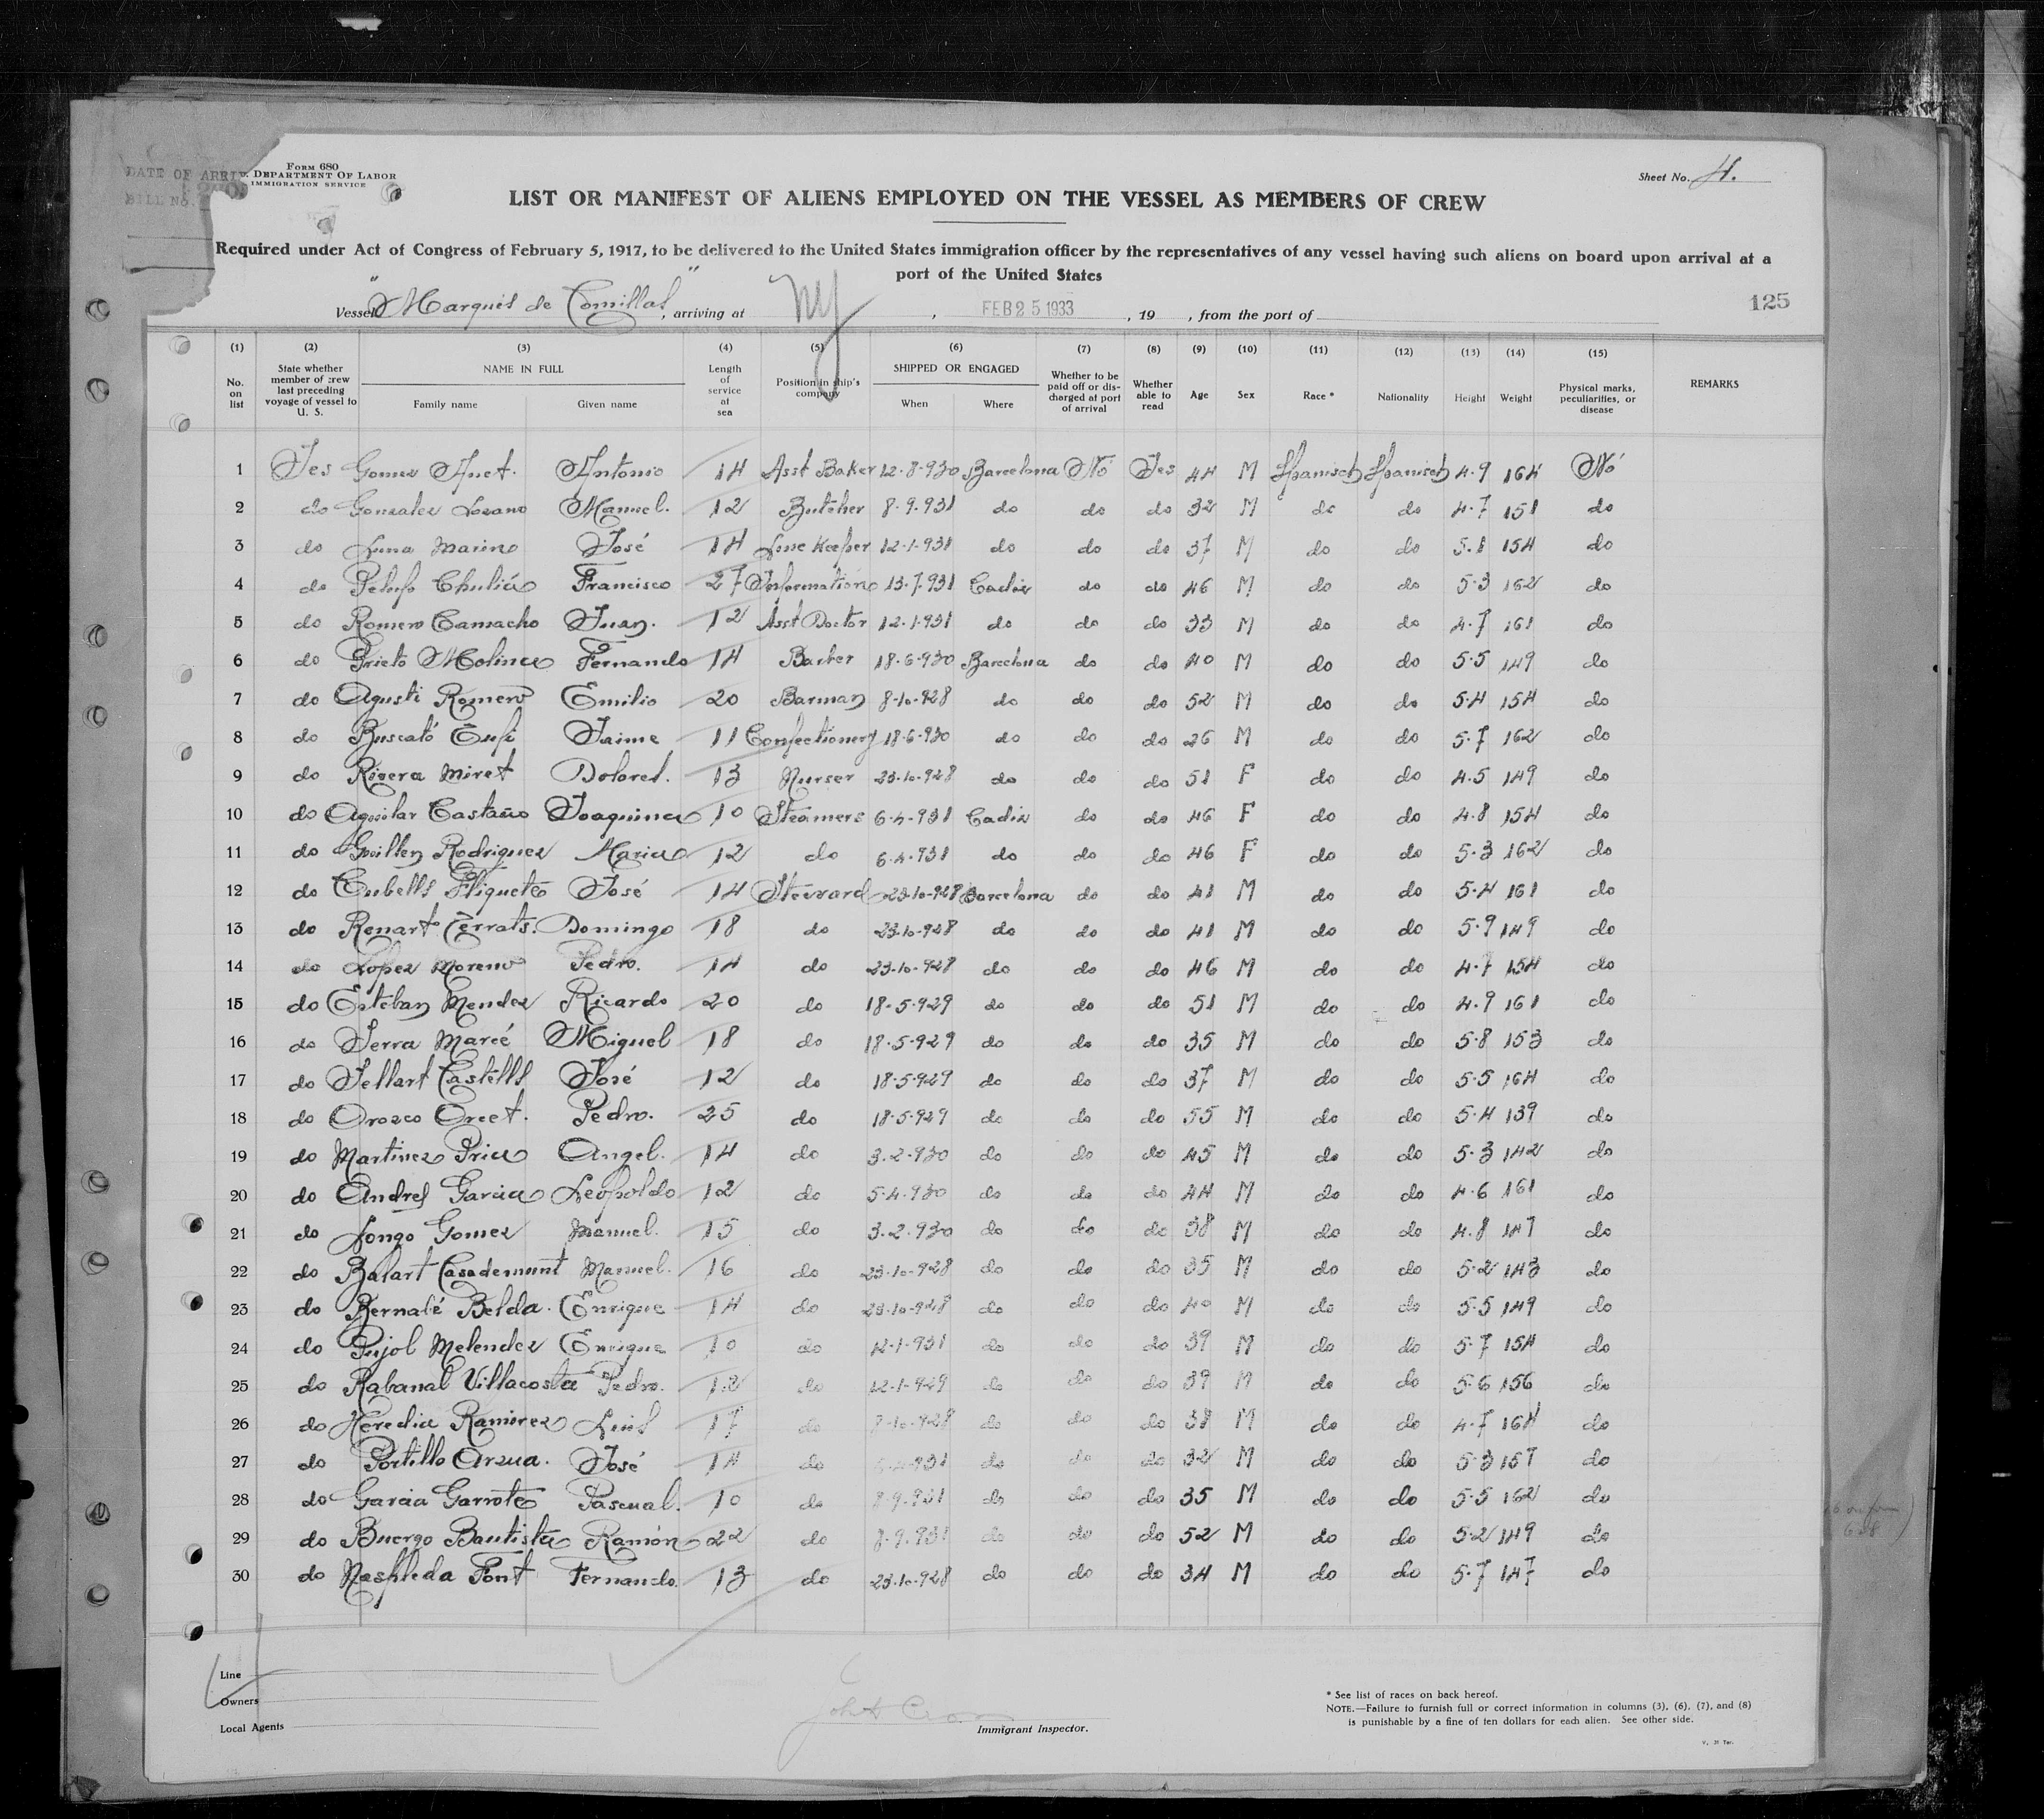 DATE OF ARRIV
BILL NO.
FORM 680
DEPARTMENT OF LABOR
IMMIGRATION SERVICE
Sheet No. 4.
LIST OR MANIFEST OF ALIENS EMPLOYED ON THE VESSEL AS MEMBERS OF CREW
Required under Act of Congress of February 5, 1917, to be delivered to the United States immigration officer by the representatives of any vessel having such aliens on board upon arrival at a
port of the United States
Vessel "Marqués de Comillas", arriving at NY, FEB 25 1933, 19 , from the port of
125
(1) (2) (3) (4) (5) (6) (7) (8) (9) (10) (11) (12) (13) (14) (15)
No. on list State whether member of crew last preceding voyage of vessel to U. S. NAME IN FULL Family name Given name Length of service at sea Position in ship's company SHIPPED OR ENGAGED When Where Whether to be paid off or discharged at port of arrival Whether able to read Age Sex Race * Nationality Height Weight Physical marks, peculiarities, or disease REMARKS
1 Yes Gomez Anet. Antonio 14 Asst Baker 12-8-930 Barcelona No Yes 44 M Spanisch Spanisch 4.9 164 No
2 do Gonzalez Lozano Manuel. 12 Butcher 8-9-931 do do do 32 M do do 4.7 151 do
3 do Luna Marino José 14 Line Keeper 12-1-931 do do do 37 M do do 5.1 154 do
4 do Pelufo Chuliá Francisco 27 Information 13-7-931 Cadiz do do 46 M do do 5.3 162 do
5 do Romero Camacho Juan. 12 Asst Doctor 12-1-931 do do do 33 M do do 4.7 161 do
6 do Prieto Molina Fernando 14 Barber 18-6-930 Barcelona do do 40 M do do 5.5 149 do
7 do Agusti Romero Emilio 20 Barman 8-10-928 do do do 52 M do do 5.4 154 do
8 do Buscató Jaime 11 Confectionery 18-6-930 do do do 26 M do do 5.7 162 do
9 do Rivera Miret Dolores. 13 Nurser 23-10-928 do do do 51 F do do 4.5 149 do
10 do Aguilar Castaño Joaquina 10 Steamers 6-4-931 Cadiz do do 46 F do do 4.8 154 do
11 do Guillen Rodriguez Maria 12 do 6-4-931 do do do 46 F do do 5.3 162 do
12 do Cubells Fliquete José 14 Steward 23-10-928 Barcelona do do 41 M do do 5.4 161 do
13 do Renart Cerrats. Domingo 18 do 23-10-928 do do do 41 M do do 5.9 149 do
14 do Lopez Moreno Pedro. 14 do 23-10-928 do do do 46 M do do 4.7 154 do
15 do Esteban Mendez Ricardo 20 do 18-5-929 do do do 51 M do do 4.9 161 do
16 do Serra Mareé Miguel 18 do 18-5-929 do do do 35 M do do 5.8 153 do
17 do Sellart Castells José 12 do 18-5-929 do do do 37 M do do 5.5 164 do
18 do Orozco Orcet. Pedro. 25 do 18-5-929 do do do 55 M do do 5.4 139 do
19 do Martinez Pria Angel. 14 do 3-2-930 do do do 45 M do do 5.3 142 do
20 do Andres Garcia Leopoldo 12 do 5-4-930 do do do 44 M do do 4.6 161 do
21 do Longo Gomez Manuel. 15 do 3-2-930 do do do 38 M do do 4.8 147 do
22 do Balart Casademunt Manuel. 16 do 23-10-928 do do do 35 M do do 5.2 143 do
23 do Bernabé Belda. Enrique 14 do 23-10-928 do do do 40 M do do 5.5 149 do
24 do Pujol Melendez Enrique 10 do 12-1-931 do do do 39 M do do 5.7 154 do
25 do Rabanal Villacosta Pedro. 12 do 12-1-929 do do do 39 M do do 5.6 156 do
26 do Heredia Ramirez Luis 17 do 8-10-928 do do do 38 M do do 4.7 164 do
27 do Portillo Arzua. José 14 do 6-4-931 do do do 32 M do do 5.3 157 do
28 do Garcia Garrote Pascual. 10 do 8-9-931 do do do 35 M do do 5.5 162 do
29 do Buergo Bautista Ramón 22 do 8-9-931 do do do 52 M do do 5.2 149 do
30 do Nashleda Font Fernando. 13 do 23-10-928 do do do 34 M do do 5.7 147 do
Line
Owners
Local Agents
Immigrant Inspector.
* See list of races on back hereof.
NOTE.—Failure to furnish full or correct information in columns (3), (6), (7), and (8)
is punishable by a fine of ten dollars for each alien. See other side.